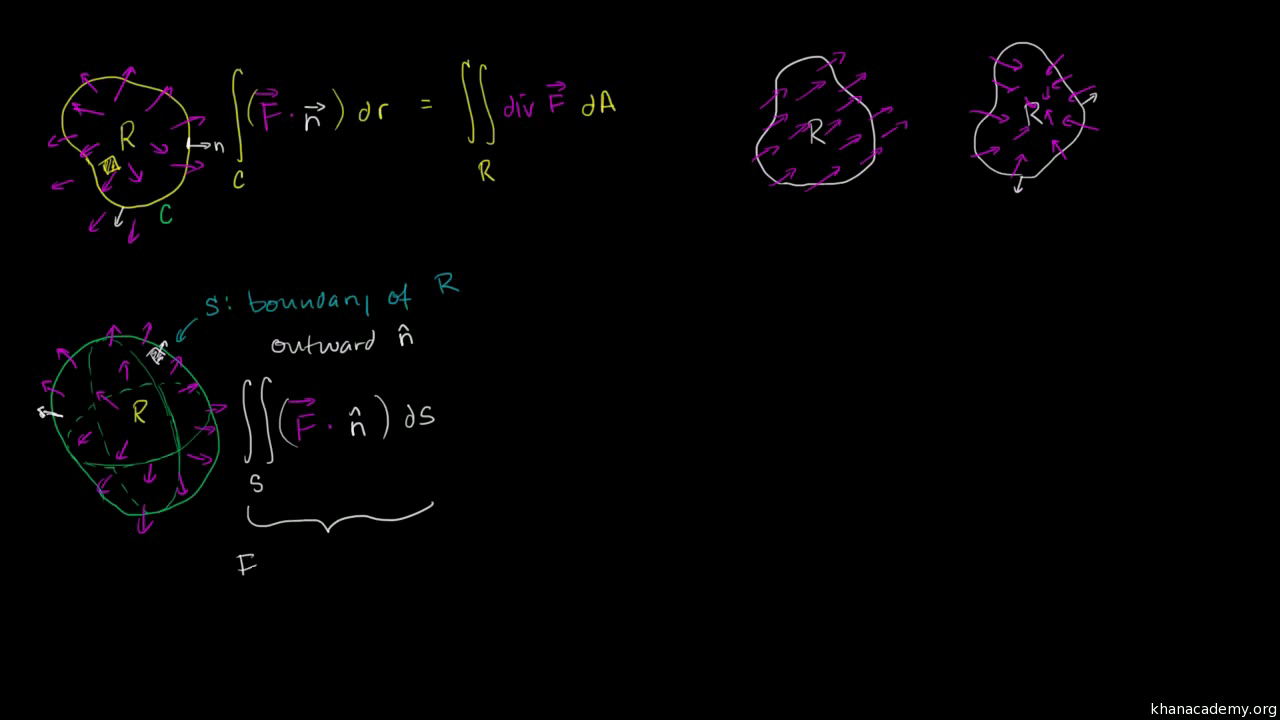 R
n
C
∫ (F⃗ · n⃗) dr = ∫∫ div F⃗ dA
C
R
R
R
S: boundary of R
outward n̂
R
∫∫ (F⃗ · n̂) dS
S
F
khanacademy.org